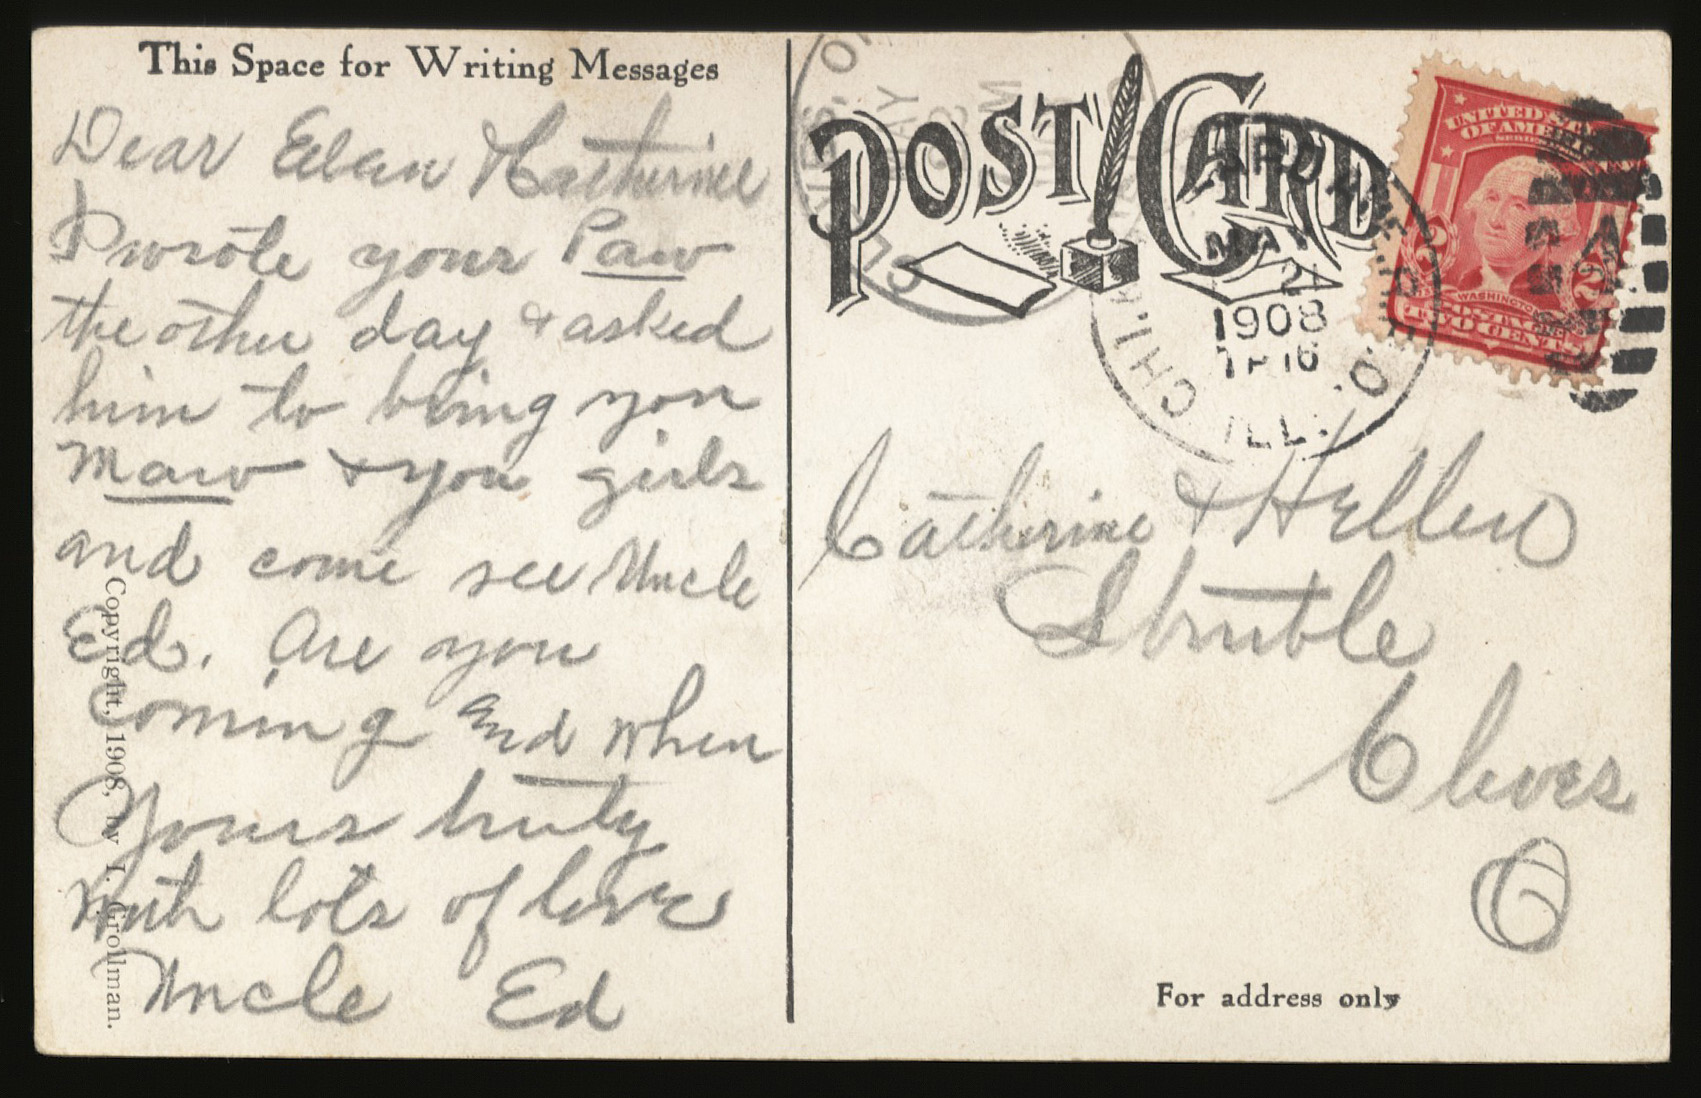 This Space for Writing Messages
Dear Katherine
I wrote your Paw
the other day & asked
him to bring you
Maw & you girls
and come see Uncle
Ed. Are you
coming and when
Yours truly
with lots of love
Uncle Ed
Copyright, 1908, by I. Grollman.
POST CARD
MAY 21
1908
CHI. ILL.
UNITED STATES
OF AMERICA
2 2
WASHINGTON
POSTAGE
TWO CENTS
Catherine & Hellen
Struble
Cleves
O
For address only